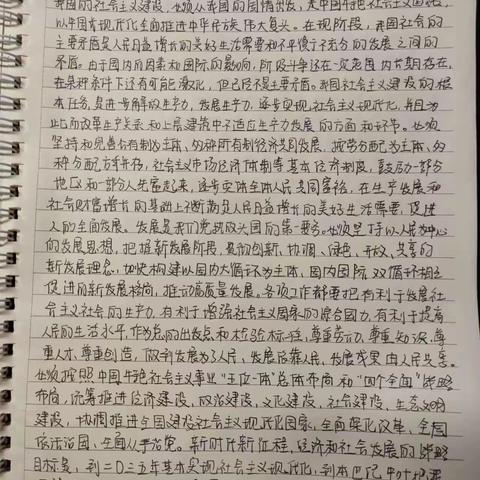 我国的社会主义建设，必须从我国的国情出发，走中国特色社会主义道路，
以中国式现代化全面推进中华民族伟大复兴。在现阶段，我国社会的
主要矛盾是人民日益增长的美好生活需要和不平衡不充分的发展之间的
矛盾。由于国内的因素和国际的影响，阶级斗争还在一定范围内长期存在，
在某种条件下还有可能激化，但已经不是主要矛盾。我国社会主义建设的根
本任务，是进一步解放生产力，发展生产力，逐步实现社会主义现代化，并且为
此而改革生产关系和上层建筑中不适应生产力发展的方面和环节。必须
坚持和完善公有制为主体、多种所有制经济共同发展，按劳分配为主体、多
种分配方式并存，社会主义市场经济体制等基本经济制度，鼓励一部分
地区和一部分人先富起来，逐步实现全体人民共同富裕，在生产发展和
社会财富增长的基础上不断满足人民日益增长的美好生活需要，促进
人的全面发展。发展是我们党执政兴国的第一要务。必须坚持以人民为中心
的发展思想，把握新发展阶段，贯彻创新、协调、绿色、开放、共享的
新发展理念，加快构建以国内大循环为主体、国内国际双循环相互
促进的新发展格局，推动高质量发展。各项工作都要把有利于发展社
会主义社会的生产力，有利于增强社会主义国家的综合国力，有利于提高
人民的生活水平，作为总的出发点和检验标准，尊重劳动、尊重知识、尊
重人才、尊重创造，做到发展为了人民、发展依靠人民、发展成果由人民共享。
必须按照中国特色社会主义事业“五位一体”总体布局和“四个全面”战略
布局，统筹推进经济建设、政治建设、文化建设、社会建设、生态文明
建设，协调推进全面建设社会主义现代化国家、全面深化改革、全面
依法治国、全面从严治党。新时代新征程，经济和社会发展的战略
目标是，到二〇三五年基本实现社会主义现代化，到本世纪中叶把我